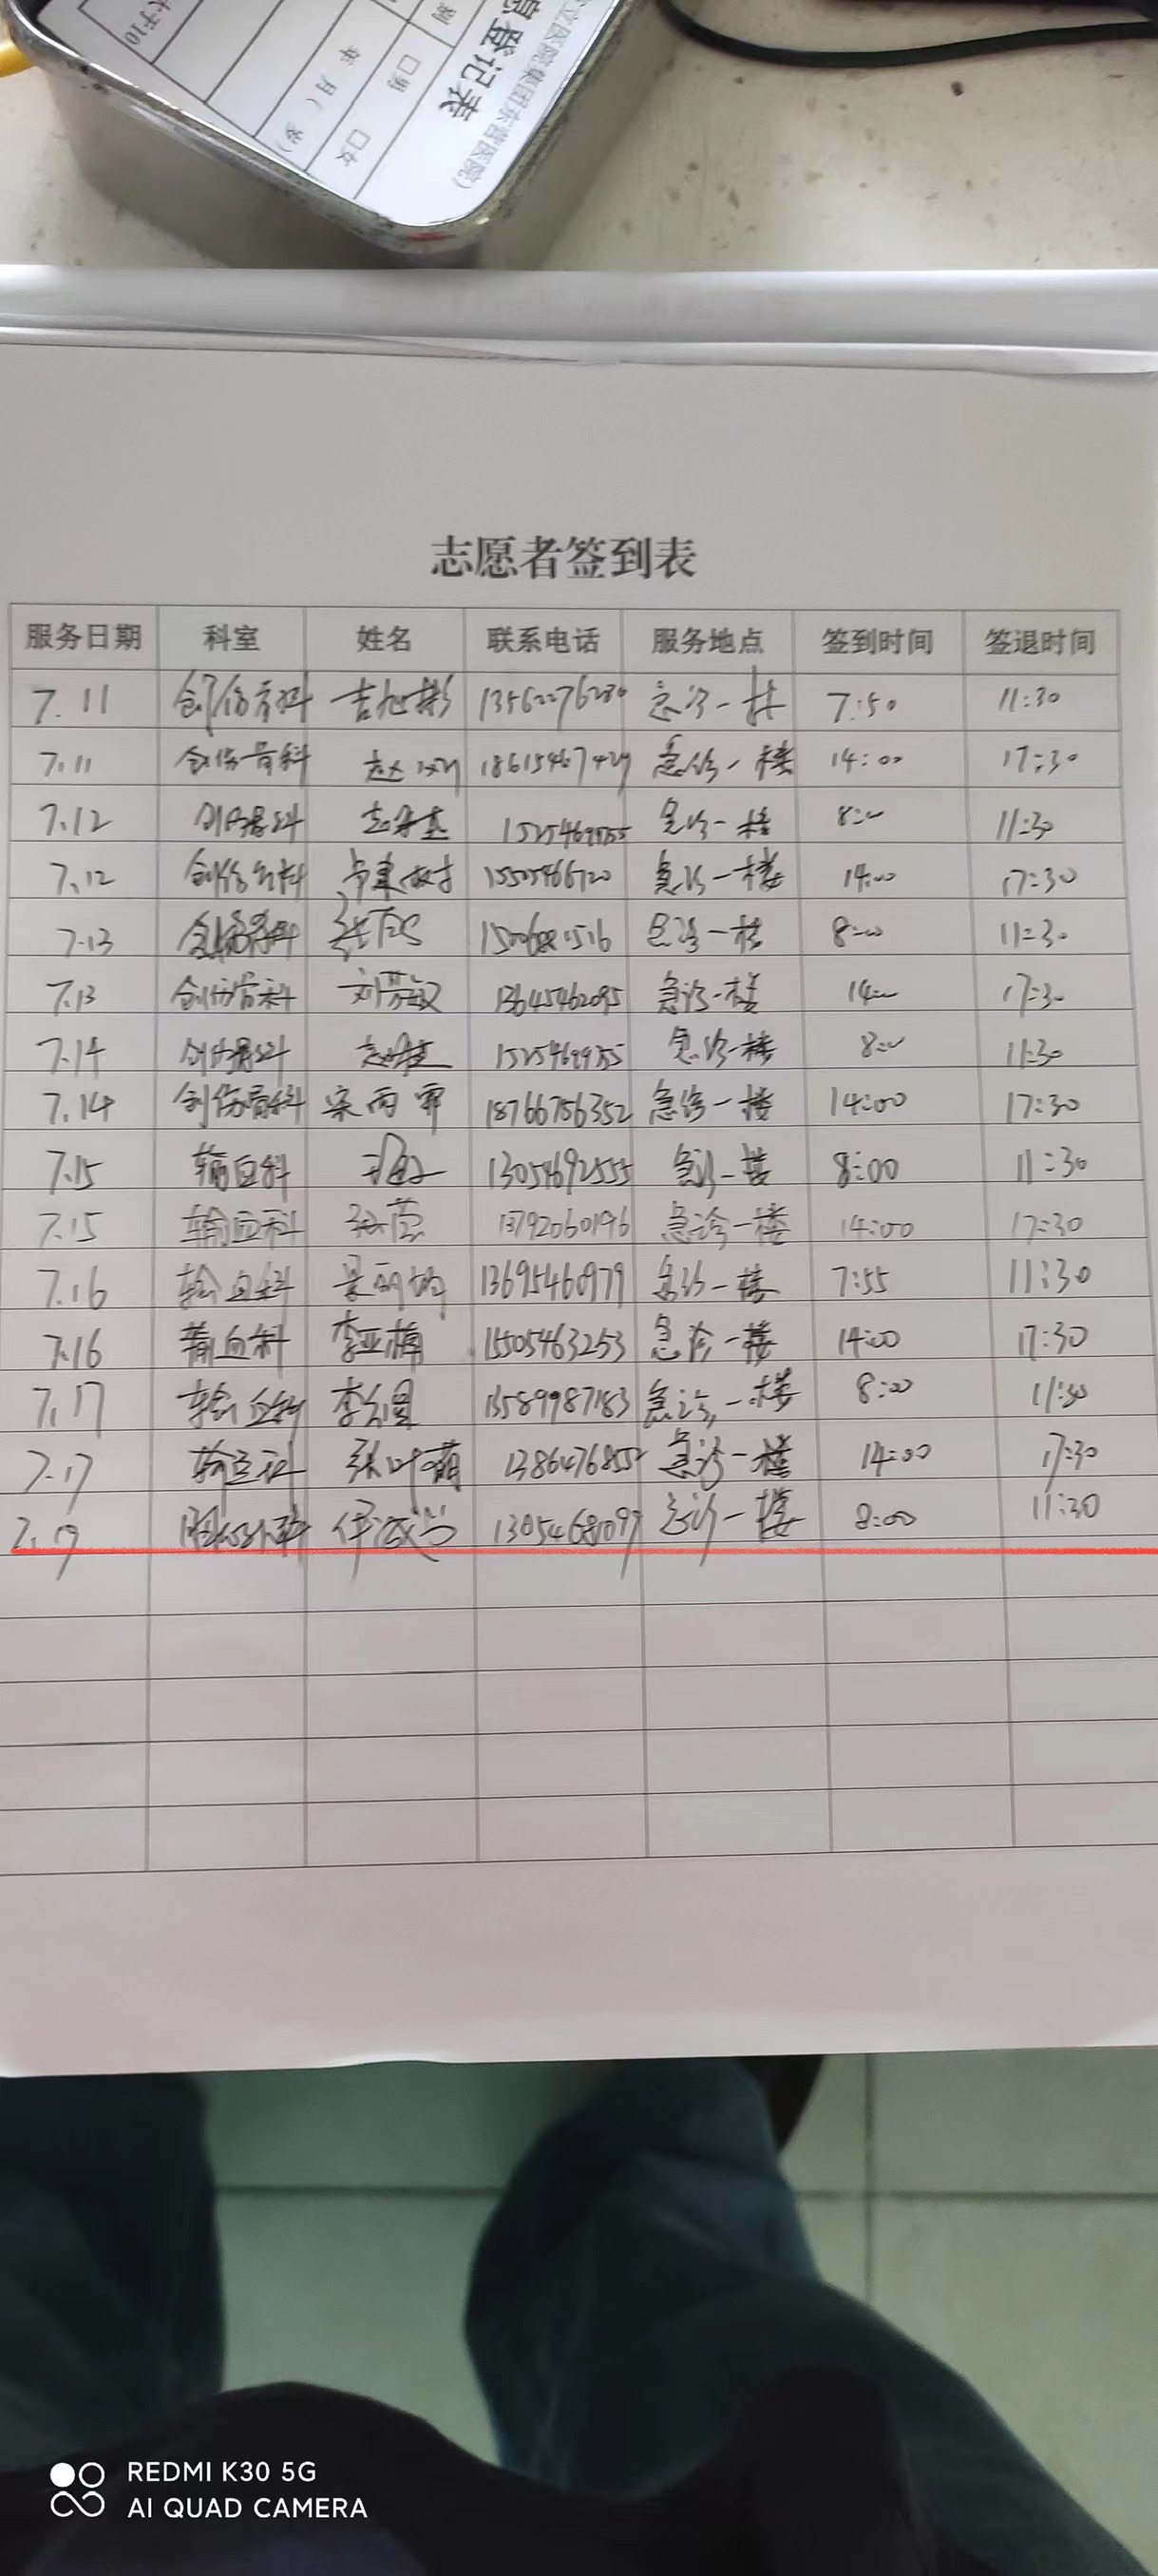 大于10
年 月( 岁)
□男
□女
别
息登记表
立医院集团东营医院)
志愿者签到表
服务日期 科室 姓名 联系电话 服务地点 签到时间 签退时间
7.11 创伤骨科 吉旭彬 急诊一楼 7:50 11:30
7.11 创伤骨科 急诊一楼 14:00 17:30
7.12 创伤骨科 急诊一楼 8:00 11:30
7.12 创伤骨科 急诊一楼 14:00 17:30
7.13 创伤骨科 急诊一楼 8:00 11:30
7.13 创伤骨科 刘芳敏 13645462095 急诊一楼 14:00 17:30
7.14 创伤骨科 急诊一楼 8:00 11:30
7.14 创伤骨科 宋雨霏 18766756352 急诊一楼 14:00 17:30
7.15 输血科 13054692555 急诊一楼 8:00 11:30
7.15 输血科 13792060196 急诊一楼 14:00 17:30
7.16 输血科 13695460979 急诊一楼 7:55 11:30
7.16 输血科 李亚楠 15505463253 急诊一楼 14:00 17:30
7.17 输血科 13589987183 急诊一楼 8:00 11:30
7.17 输血科 急诊一楼 14:00 17:30
7.19 13054681097 急诊一楼 8:00 11:30
REDMI K30 5G
AI QUAD CAMERA